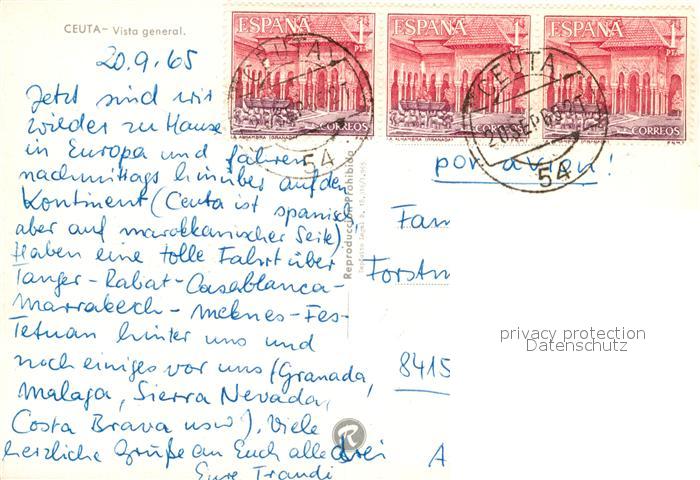 CEUTA – Vista general.
20.9.65
Jetzt sind wir
wieder zu Hause
in Europa und fahren
nachmittags hinüber auf den
Kontinent (Ceuta ist spanisch
aber auf marokkanischer Seite)
Haben eine tolle Fahrt über
Tanger - Rabat - Casablanca -
Marrakech - Meknes - Fes -
Tetuan hinter uns und
noch einiges vor uns (Granada,
Malaga, Sierra Nevada,
Costa Brava usw). Viele
herzliche Grüße an Euch alle drei
Eure Traudi
ESPAÑA 1 PTA
ESPAÑA 1 PTA
ESPAÑA 1 PTA
CORREOS
CORREOS
CORREOS
LA ALHAMBRA (GRANADA)
CEUTA
54
CEUTA
20 SEP 65
54
Reproducción Prohibida
por avion!
Fam
Forstn
8415
A
R
privacy protection
Datenschutz